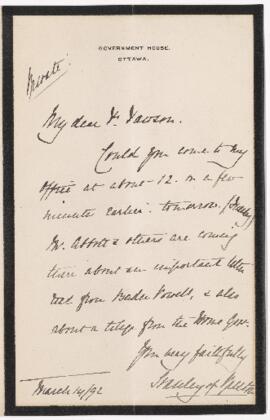 GOVERNMENT HOUSE.
OTTAWA.
Private
My dear Dr. Dawson.
Could you come to my
office at about 12. or a few
minutes earlier tomorrow. (Tuesday)
Mr. Abbott & others are coming
there about an important letter
recd from Baden Powell, & also
about a telegr. from the Home Govt.
Yrs very faithfully
Stanley of Preston
March 14/92